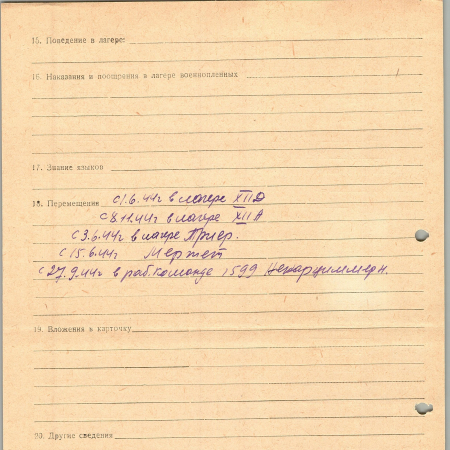 15. Поведение в лагере:
16. Наказания и поощрения в лагере военнопленных
17. Знание языков
18. Перемещения с 1.6.44г в лагере XII D
с 8.11.44г в лагере XII А
с 3.6.44г в лагере Триер.
с 15.6.44г Мержет
с 27.9.44г в раб команде 1599
19. Вложения в карточку
20. Другие сведения